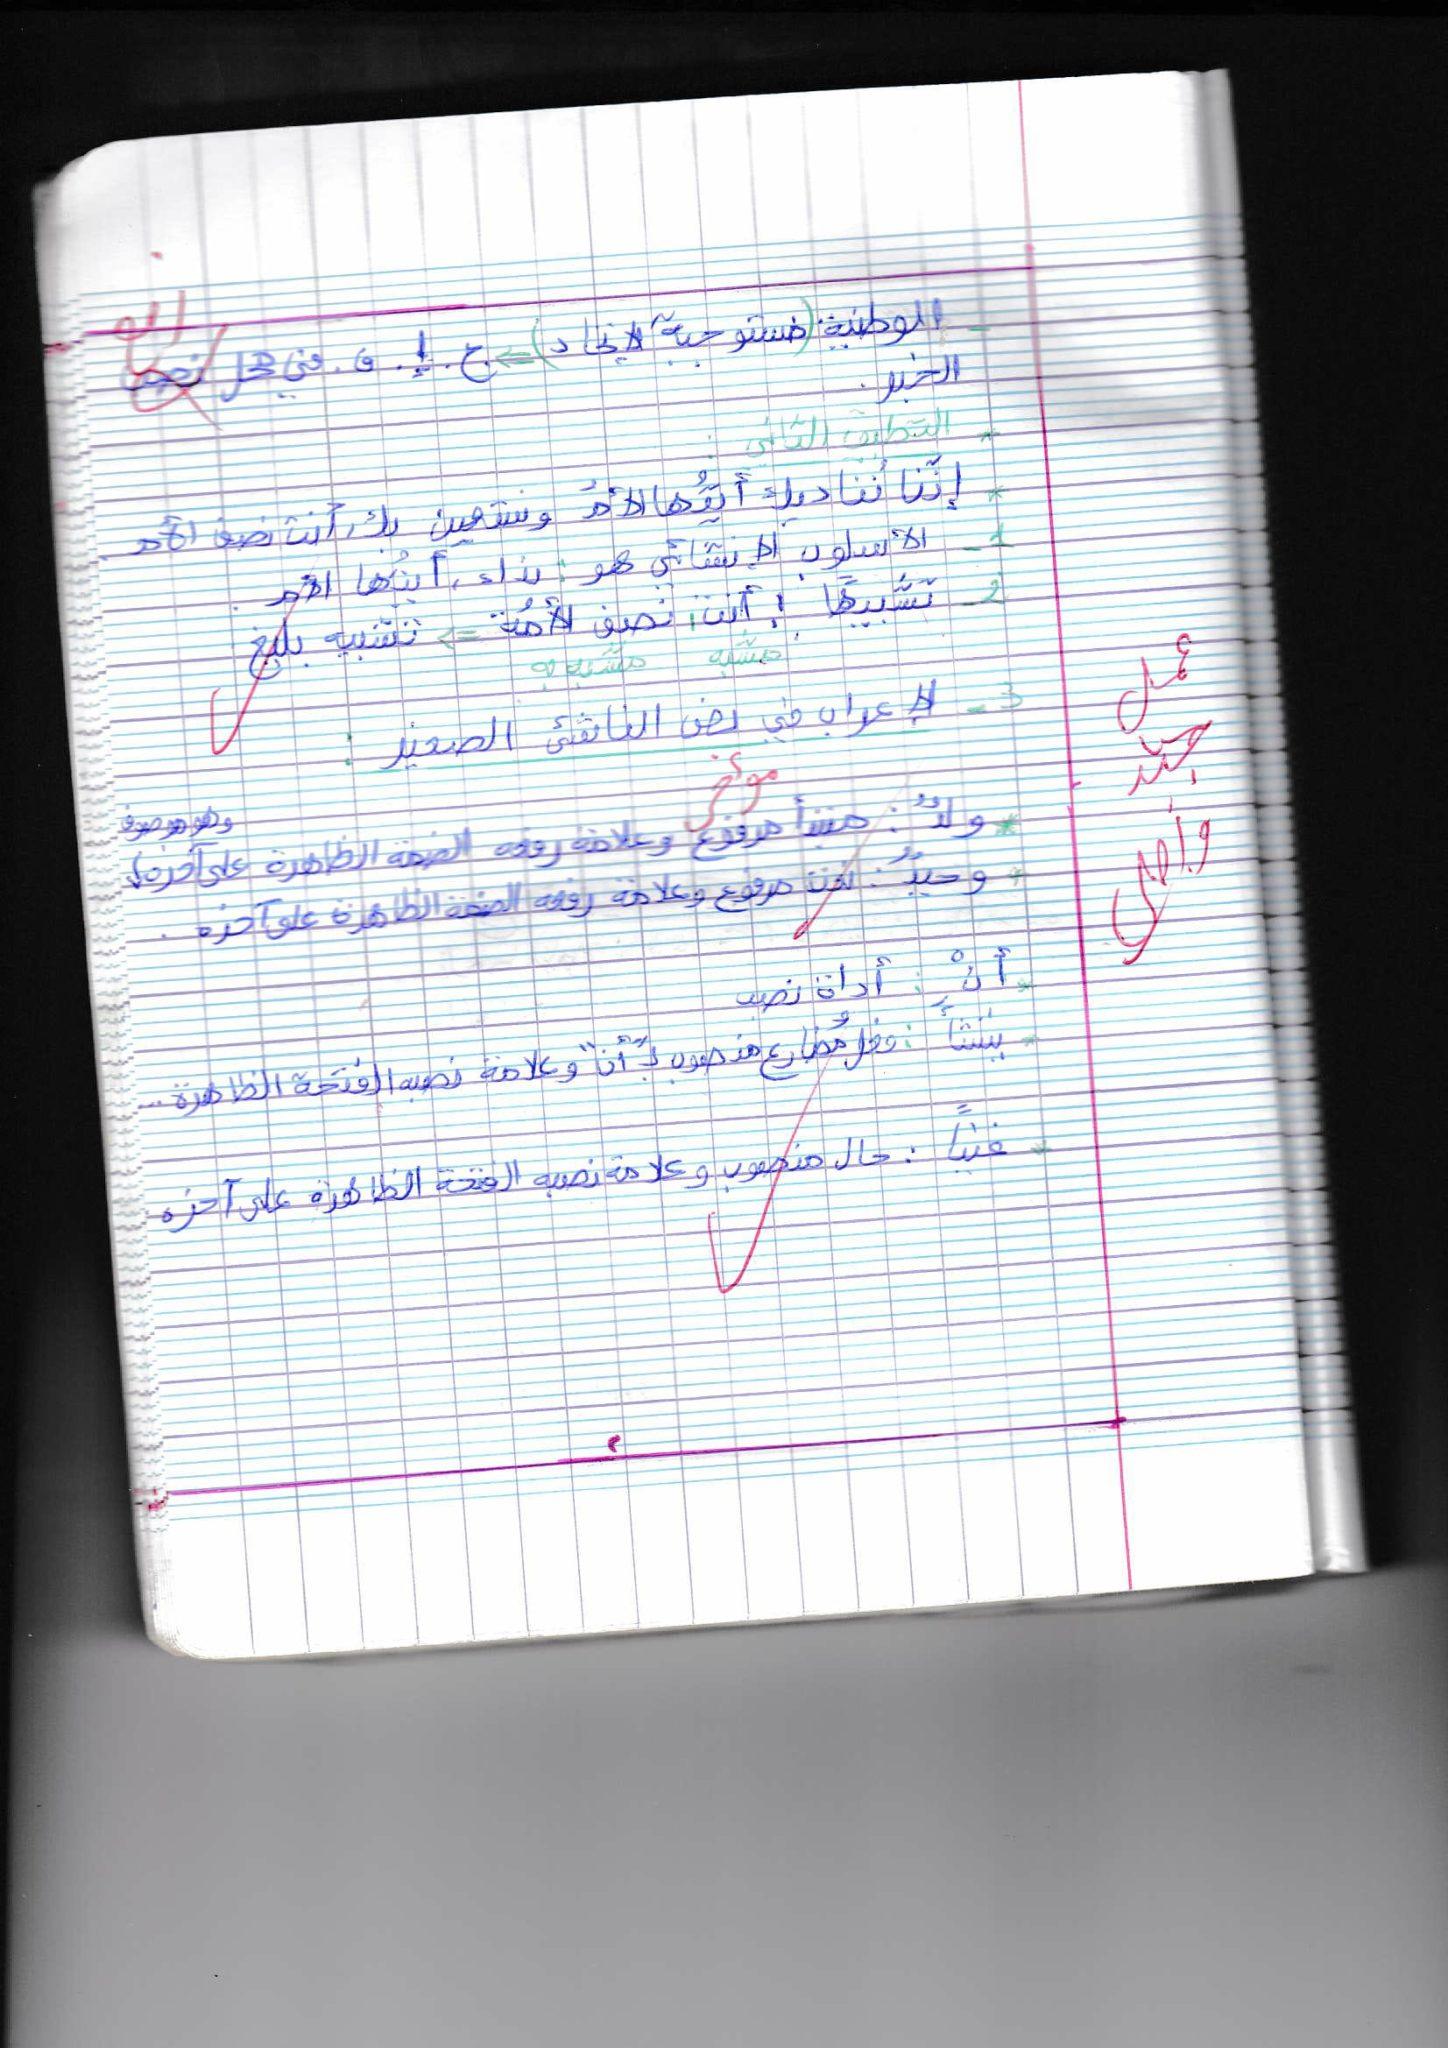 - الوطنية (مستوجبة الإتحاد) => ج. إ. ف. في محل نصب
الخبر.
* التطبيق الثاني :
* إنّنا نُناديكِ أيّتُها الأمُ ونستعين بك، أنت نصف الأمة
1- الأسلوب الإنشائي هو : نداء، أيتُها الأم.
2- تشبيهًا : أنت، نصف الأمُة => تشبيه بليغ
مشبه مشبه به
3- الإعراب في نص الناشئ الصغير :
مؤخر
* ولدٌ : مبتدأ مرفوع وعلامة رفعه الضمة الظاهرة على آخره وهو موصوف
* وحيدٌ : نعت مرفوع وعلامة رفعه الضمة الظاهرة على آخره.
* أنْ : أداة نصب
* ينشأَ : فعل مُضارع منصوب بـ "أن" وعلامة نصبه الفتحة الظاهرة ...
* غنياً : حال منصوب وعلامة نصبه الفتحة الظاهرة على آخره
عمل
جيد